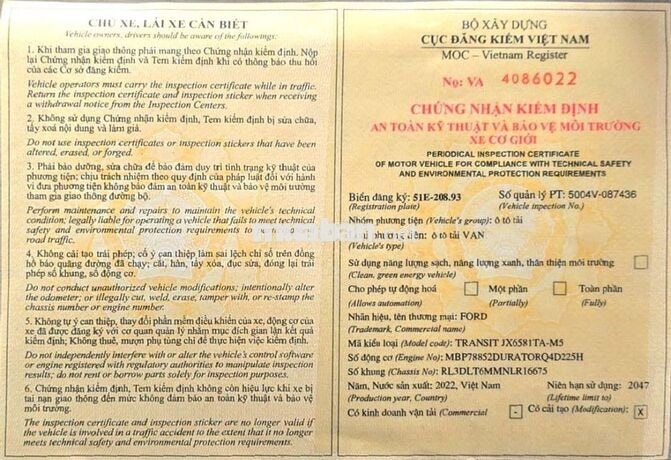 CHỦ XE, LÁI XE CẦN BIẾT
Vehicle owners, drivers should be aware of the followings:
1. Khi tham gia giao thông phải mang theo Chứng nhận kiểm định. Nộp
lại Chứng nhận kiểm định và Tem kiểm định khi có thông báo thu hồi
của các Cơ sở đăng kiểm.
Vehicle operators must carry the inspection certificate while in traffic.
Return the inspection certificate and inspection sticker when receiving
a withdrawal notice from the Inspection Centers.
2. Không sử dụng Chứng nhận kiểm định, Tem kiểm định bị sửa chữa,
tẩy xoá nội dung và làm giả.
Do not use inspection certificates or inspection stickers that have been
altered, erased, or forged.
3. Phải bảo dưỡng, sửa chữa để bảo đảm duy trì tình trạng kỹ thuật của
phương tiện; chịu trách nhiệm theo quy định của pháp luật đối với hành
vi đưa phương tiện không bảo đảm an toàn kỹ thuật và bảo vệ môi trường
tham gia giao thông đường bộ.
Perform maintenance and repairs to maintain the vehicle's technical
condition; legally liable for operating a vehicle that fails to meet technical
safety and environmental protection requirements to participate in
road traffic.
4. Không cải tạo trái phép; cố ý can thiệp làm sai lệch chỉ số trên đồng
hồ báo quãng đường đã chạy; cắt, hàn, tẩy xóa, đục sửa, đóng lại trái
phép số khung, số động cơ.
Do not conduct unauthorized vehicle modifications; intentionally alter
the odometer; or illegally cut, weld, erase, tamper with, or re-stamp the
chassis number or engine number.
5. Không tự ý can thiệp, thay đổi phần mềm điều khiển của xe, động cơ của
xe đã được đăng ký với cơ quan quản lý nhằm mục đích gian lận kết quả
kiểm định; Không thuê, mượn phụ tùng chỉ để thực hiện việc kiểm định.
Do not independently interfere with or alter the vehicle's control software
or engine registered with regulatory authorities to manipulate inspection
results; do not rent or borrow parts solely for inspection purposes.
6. Chứng nhận kiểm định, Tem kiểm định không còn hiệu lực khi xe bị
tai nạn giao thông đến mức không đảm bảo an toàn kỹ thuật và bảo vệ
môi trường.
The inspection certificate and inspection sticker are no longer valid if
the vehicle is involved in a traffic accident to the extent that it no longer
meets technical safety and environmental protection requirements.
BỘ XÂY DỰNG
CỤC ĐĂNG KIỂM VIỆT NAM
MOC – Vietnam Register
No: VA 4086022
CHỨNG NHẬN KIỂM ĐỊNH
AN TOÀN KỸ THUẬT VÀ BẢO VỆ MÔI TRƯỜNG
XE CƠ GIỚI
PERIODICAL INSPECTION CERTIFICATE
OF MOTOR VEHICLE FOR COMPLIANCE WITH TECHNICAL SAFETY
AND ENVIRONMENTAL PROTECTION REQUIREMENTS
Biển đăng ký: 51E-208.93 Số quản lý PT: 5004V-087436
(Registration plate) (Vehicle inspection No.)
Nhóm phương tiện (Vehicle's group): ô tô tải
Loại phương tiện: ô tô tải VAN
(Vehicle's type)
Sử dụng năng lượng sạch, năng lượng xanh, thân thiện môi trường
(Clean, green energy vehicle)
Cho phép tự động hoá Một phần Toàn phần
(Allows automation) (Partially) (Fully)
Nhãn hiệu, tên thương mại: FORD
(Trademark, Commercial name)
Mã kiểu loại (Model code): TRANSIT JX6581TA-M5
Số động cơ (Engine No): MBP78852DURATORQ4D225H
Số khung (Chassis No): RL3DLT6MMNLR16675
Năm, Nước sản xuất: 2022, Việt Nam Niên hạn sử dụng: 2047
(Production year, Country) (Lifetime limit to)
Có kinh doanh vận tải (Commercial - Có cải tạo (Modification); X